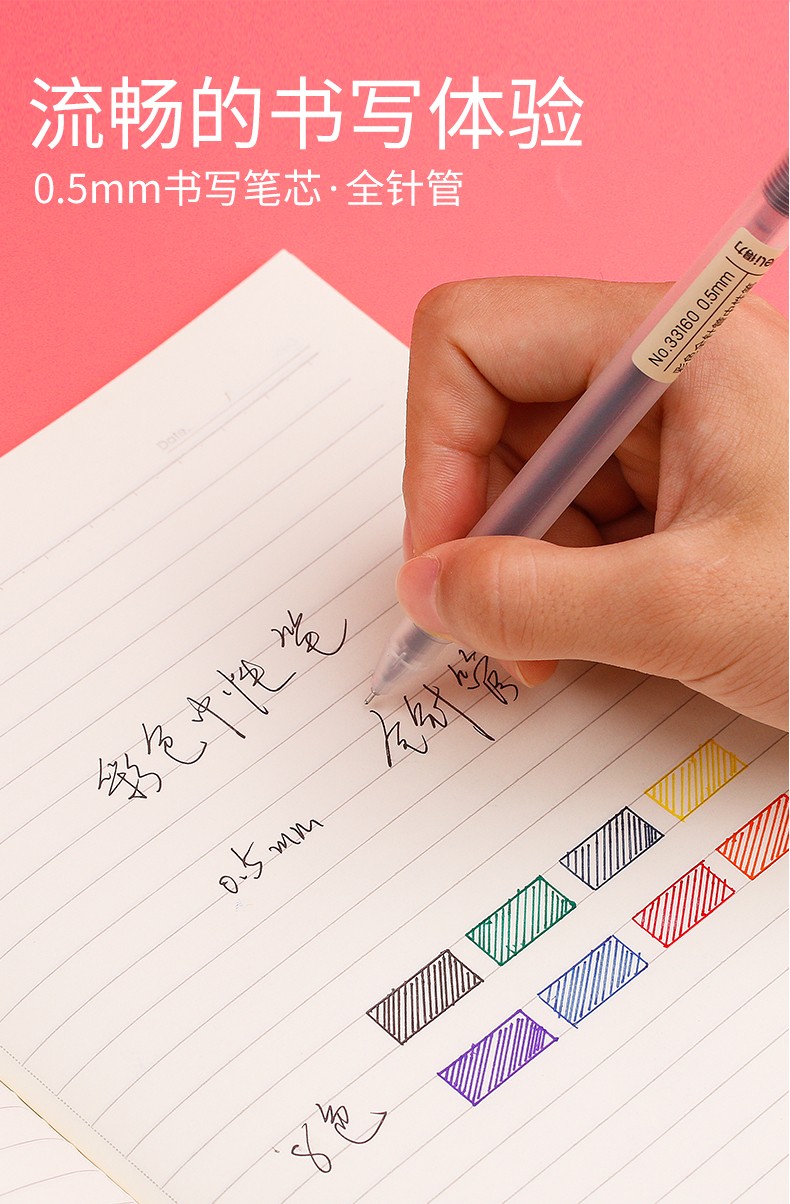 流畅的书写体验
0.5mm书写笔芯·全针管
deli得力
No.33160 0.5mm
彩色全针管中性笔
Date.
彩色中性笔
全针管
0.5mm
8色